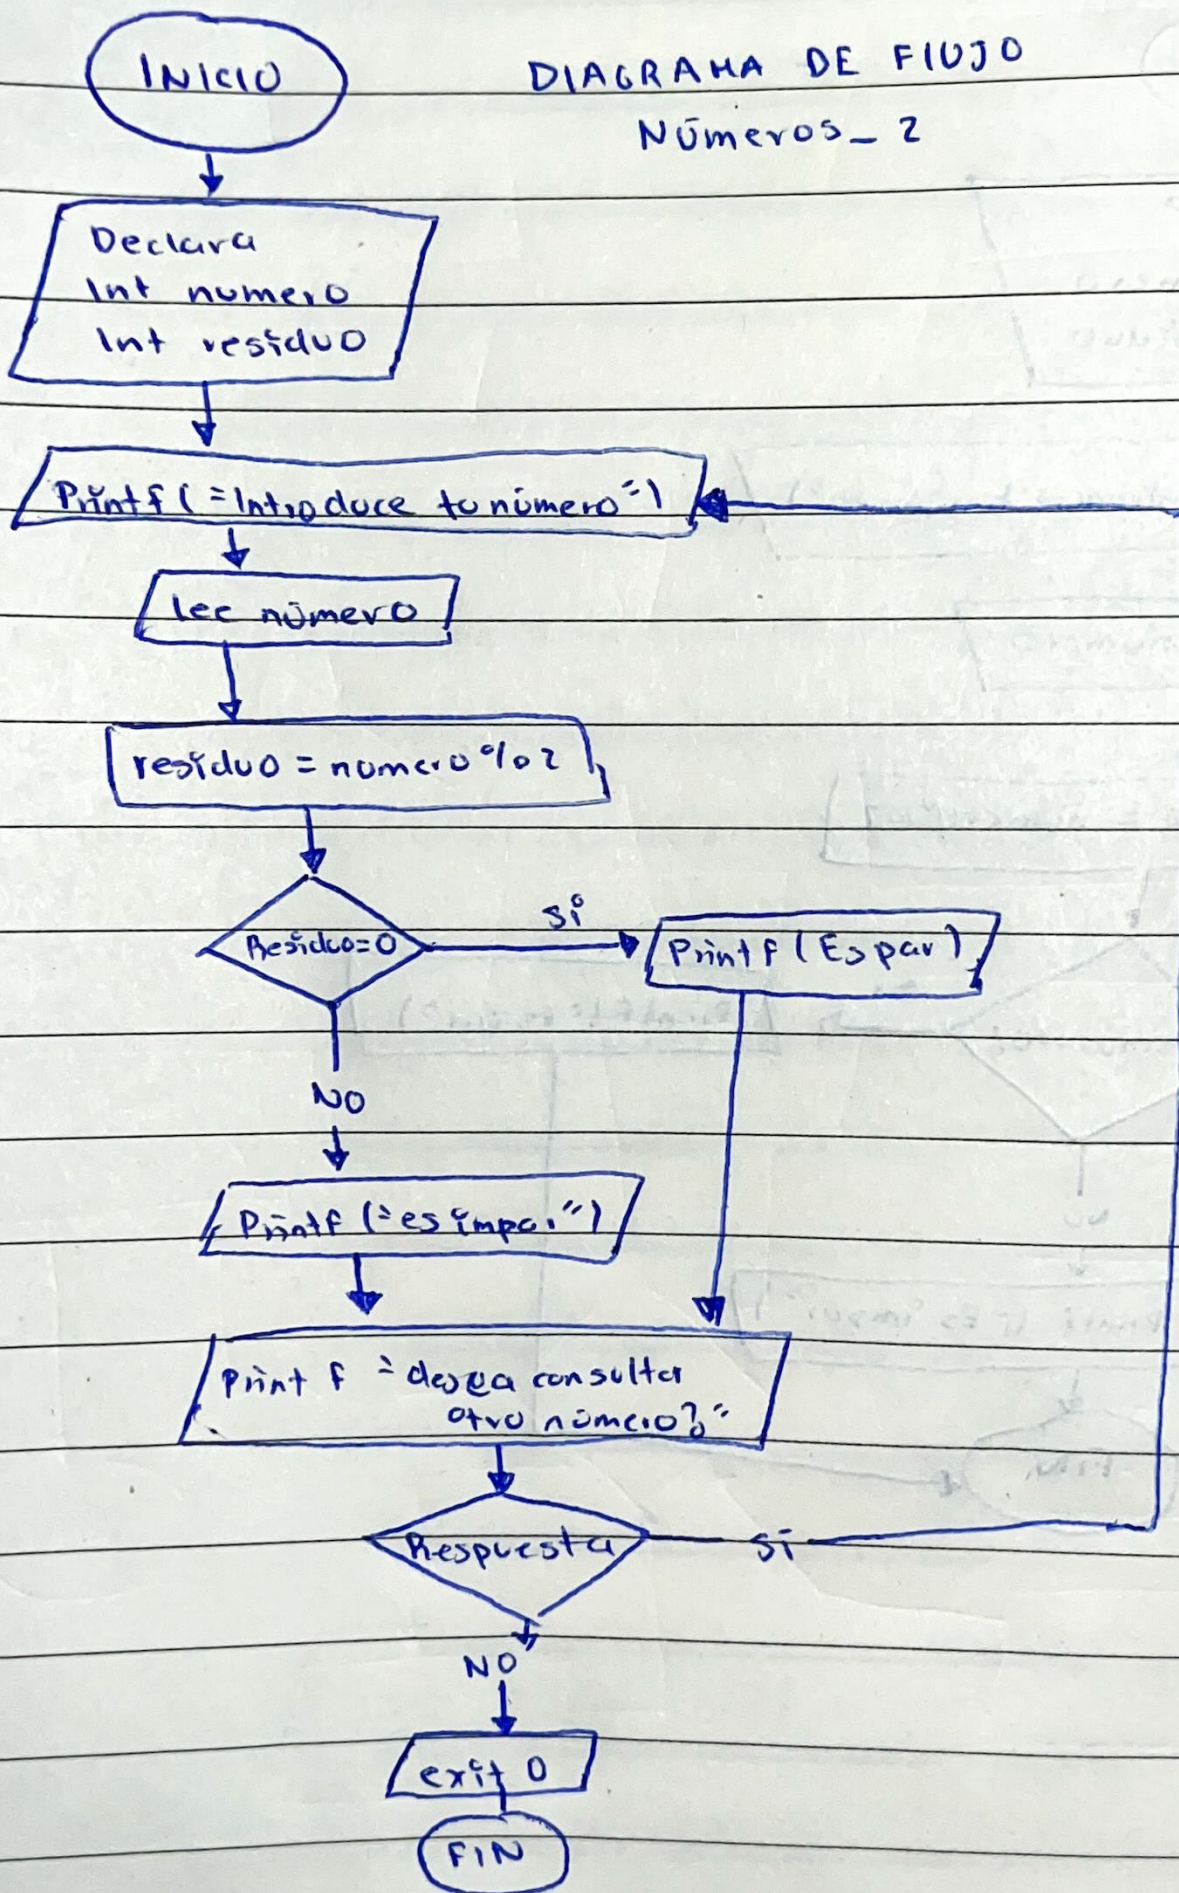 INICIO
DIAGRAMA DE FlUJO
Números_2
Declara
Int numero
Int residuo
Printf ("Introduce tu número")
lee número
residuo = numero % 2
Residuo=0
Si
Printf (Es par)
NO
Printf ("es impar")
Printf "desea consultar
otro número?"
Respuesta
Si
NO
exit 0
FIN